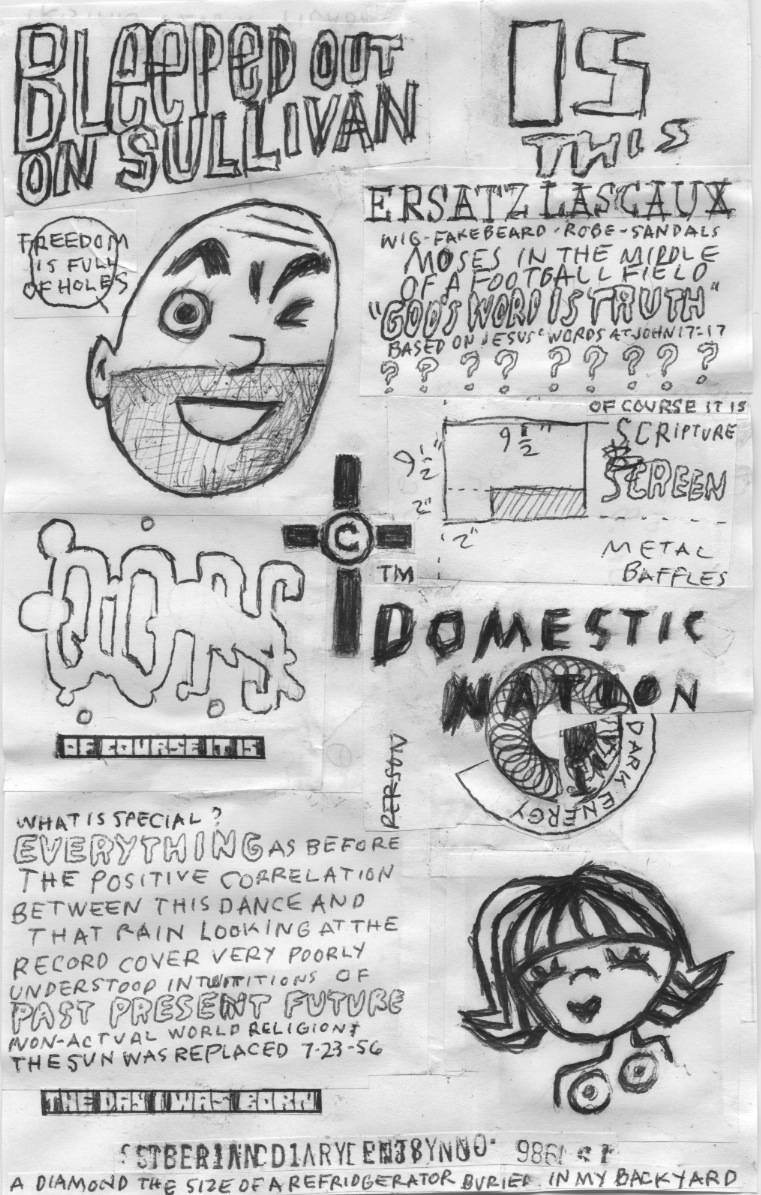 BLEEPED OUT
ON SULLIVAN
IS
THIS
ERSATZ LASCAUX
WIG-FAKEBEARD-ROBE-SANDALS
MOSES IN THE MIDDLE
OF A FOOTBALL FIELD
"GOD'S WORD IS TRUTH"
BASED ON JESUS' WORDS AT JOHN 17-17
? ? ? ? ? ? ? ? ?
FREEDOM
IS FULL
OF HOLES
OF COURSE IT IS
SCRIPTURE
SCREEN
9 1/2"
9 1/2"
2"
2"
METAL
BAFFLES
C
TM
OF COURSE IT IS
DOMESTIC
NATION
PERSON
DARK ENERGY
WHAT IS SPECIAL?
EVERYTHING AS BEFORE
THE POSITIVE CORRELATION
BETWEEN THIS DANCE AND
THAT RAIN LOOKING AT THE
RECORD COVER VERY POORLY
UNDERSTOOD INTUITITIONS OF
PAST PRESENT FUTURE
NON-ACTUAL WORLD RELIGION
THE SUN WAS REPLACED 7-23-56
THE DAY I WAS BORN
A DIAMOND THE SIZE OF A REFRIDGERATOR BURIED IN MY BACKYARD